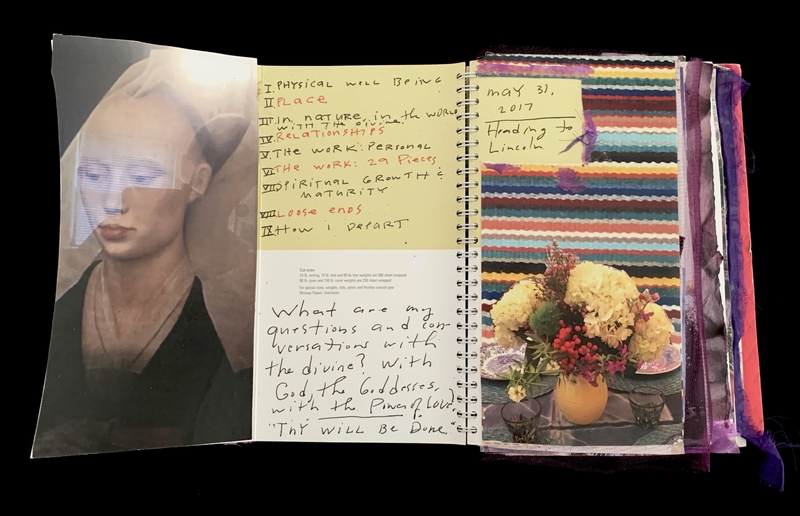 I. PHYSICAL WELL BEING
II PLACE
III. In nature, in the world
with the Divine.
IV. RELATIONSHIPS
V. THE WORK: PERSONAL
VI. THE WORK: 29 Pieces
VII. SPIRITUAL GROWTH &
MATURITY
VIII. LOOSE ENDS
IX. HOW I DEPART
Cut sizes
What are my
questions and con-
versations with
the divine? With
God, the Goddesses,
with the Power of Love?
"THY WILL BE DONE."
MAY 31,
2017
Heading to
Lincoln